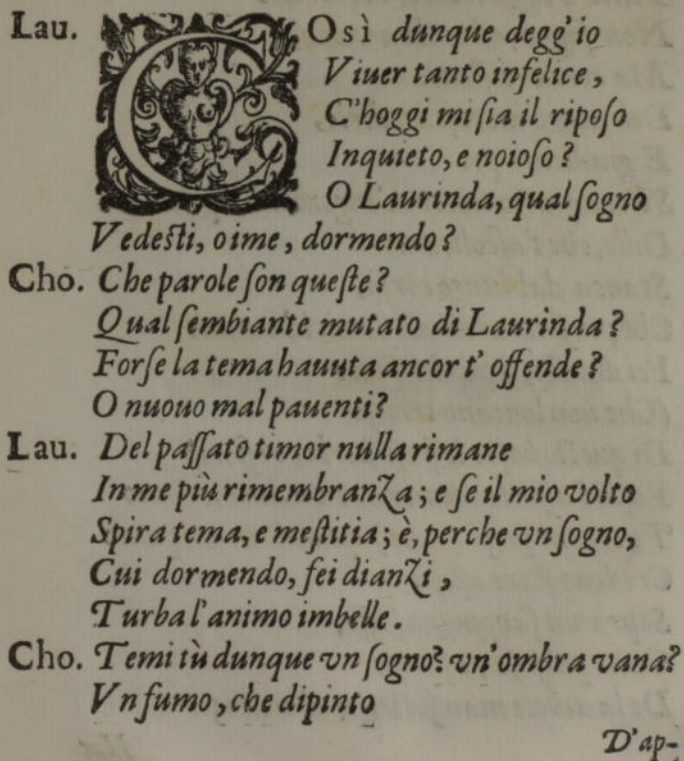 Lau. COsì dunque degg'io
Viuer tanto infelice,
C'hoggi mi ſia il ripoſo
Inquieto, e noioſo?
O Laurinda, qual ſogno
Vedeſti, oime, dormendo?
Cho. Che parole ſon queſte?
Qual ſembiante mutato di Laurinda?
Forſe la tema hauuta ancor t' offende?
O nuouo mal pauenti?
Lau. Del paſſato timor nulla rimane
In me più rimembranza; e ſe il mio volto
Spira tema, e meſtitia; è, perche vn ſogno,
Cui dormendo, fei dianzi,
Turba l'animo imbelle.
Cho. Temi tù dunque vn ſogno? vn' ombra vana?
Vn fumo, che dipinto
D'ap-